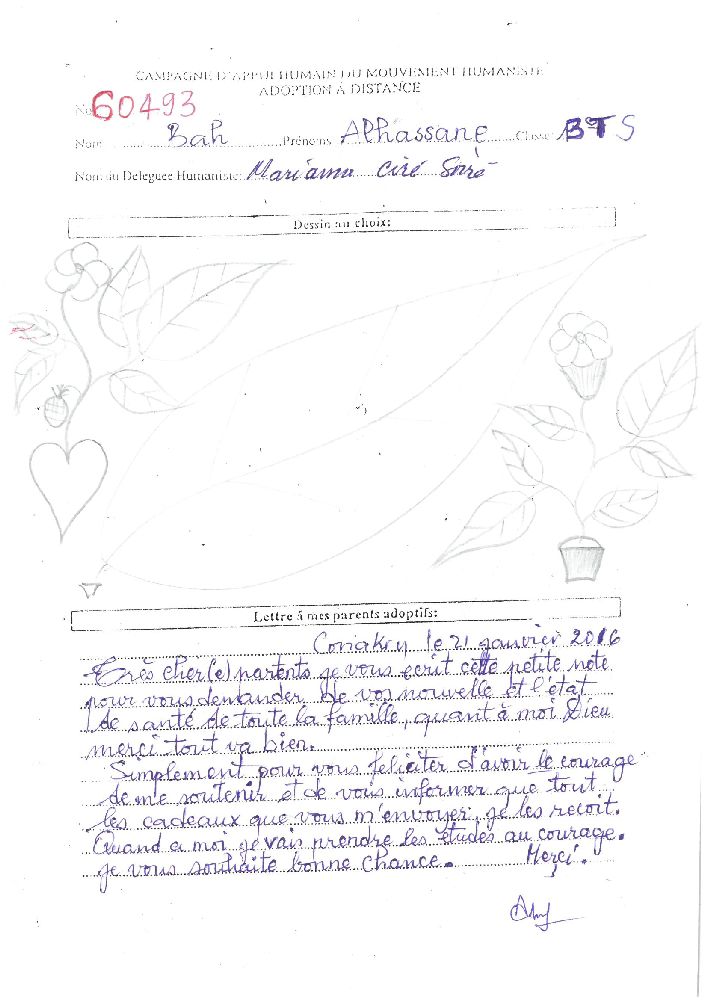 CAMPAGNE D'APPUI HUMAIN DU MOUVEMENT HUMANISTE
ADOPTION A DISTANCE
No 60493
Nom Bah Prénoms Alhassane Classe BTS
Nom du Deleguee Humaniste: Mariama Ciré Soiré
Dessin au choix:
Lettre à mes parents adoptifs:
Conakry le 21 janvier 2016
Très cher(e) parents je vous ecrit cette petite note
pour vous demander de vos nouvelle et l'état
de santé de toute la famille, quant à moi Dieu
merci tout va bien.
Simplement pour vous feliciter d'avoir le courage
de me soutenir et de vous informer que tout
les cadeaux que vous m'envoyer, je les reçoit.
Quand a moi je vais prendre les études au courage.
je vous souhaite bonne chance. Merçi.